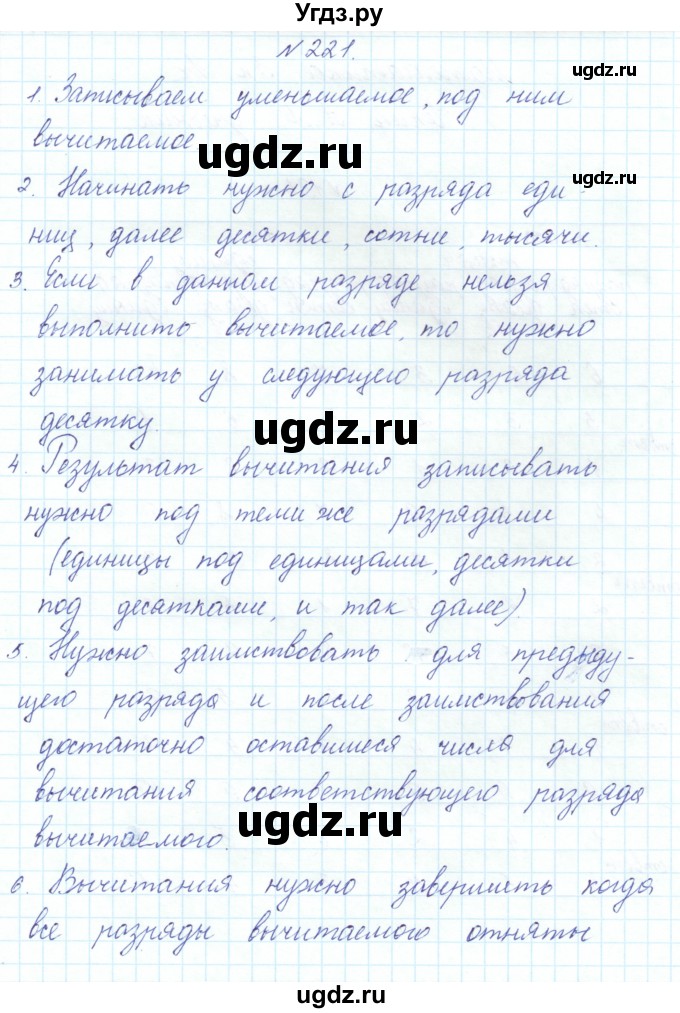 Угдз.ру
№221.
1. Записываем уменьшаемое, под ним
вычитаемое
ugdz.ru
ugdz.ru
ugdz.ru
2. Начинать нужно с разряда еди-
ниц, далее десятки, сотни, тысячи.
3. Если в данном разряде нельзя
выполнить вычитаемое, то нужно
занимать у следующего разряда
десятку.
ugdz.ru
4. Результат вычитания записывать
нужно под теми же разрядами
(единицы под единицами, десятки
под десятками, и так далее).
5. Нужно заимствовать для предыду-
щего разряда и после заимствования
достаточно оставшиеся числа для
вычитания соответствующего разряда
вычитаемого.
ugdz.ru
6. Вычитания нужно завершить когда
все разряды вычитаемого отняты
ugdz.ru